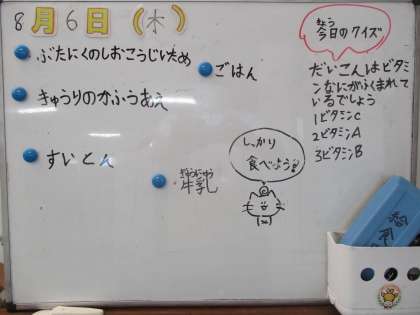 8月6日(木)
ぶたにくのしおこうじいため
ごはん
きゅうりのかふうあえ
すいとん
ぎゅうにゅう
牛乳
しっかり
食べよう!!
きょう
今日のクイズ
だいこんはビタミ
ンなにがふくまれて
いるでしょう
1ビタミンC
2ビタミンA
3ビタミンB